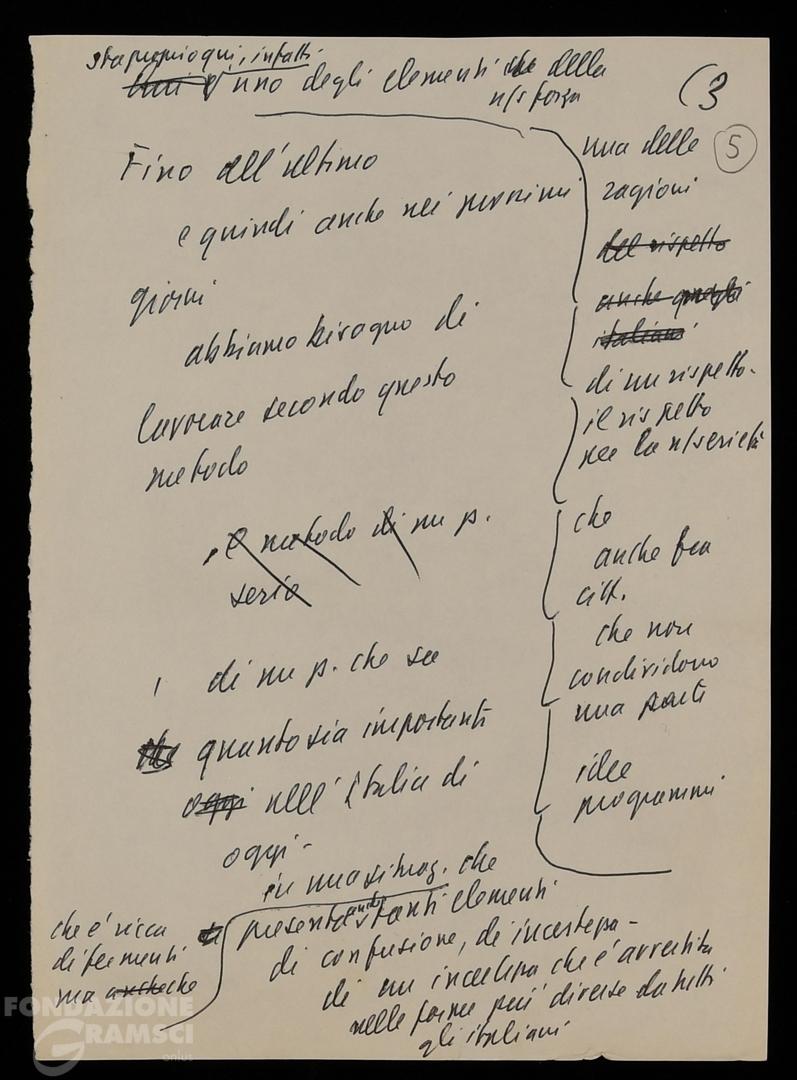 sta proprio qui, infatti
uno degli elementi della
n/s forza
(3
5
Fino all'ultimo
e quindi anche nei prossimi
giorni
abbiamo bisogno di
lavorare secondo questo
metodo
, il metodo di un p.
serio
, di un p. che sa
che quanto sia importanti
oggi nell'Italia di
oggi -
in una situaz. che
presenta anche tanti elementi
di confusione, di incertezza -
di un' incertezza che è avvertita
nelle forme più diverse da tutti
gli italiani
che è ricca
di fermenti
ma anche che
una delle
ragioni
del rispetto
anche quegli
italiani
di un rispetto -
il rispetto
per la n/serietà
che
anche fra
citt.
che non
condividono
una parte
idee
programmi
FONDAZIONE
GRAMSCI
onlus